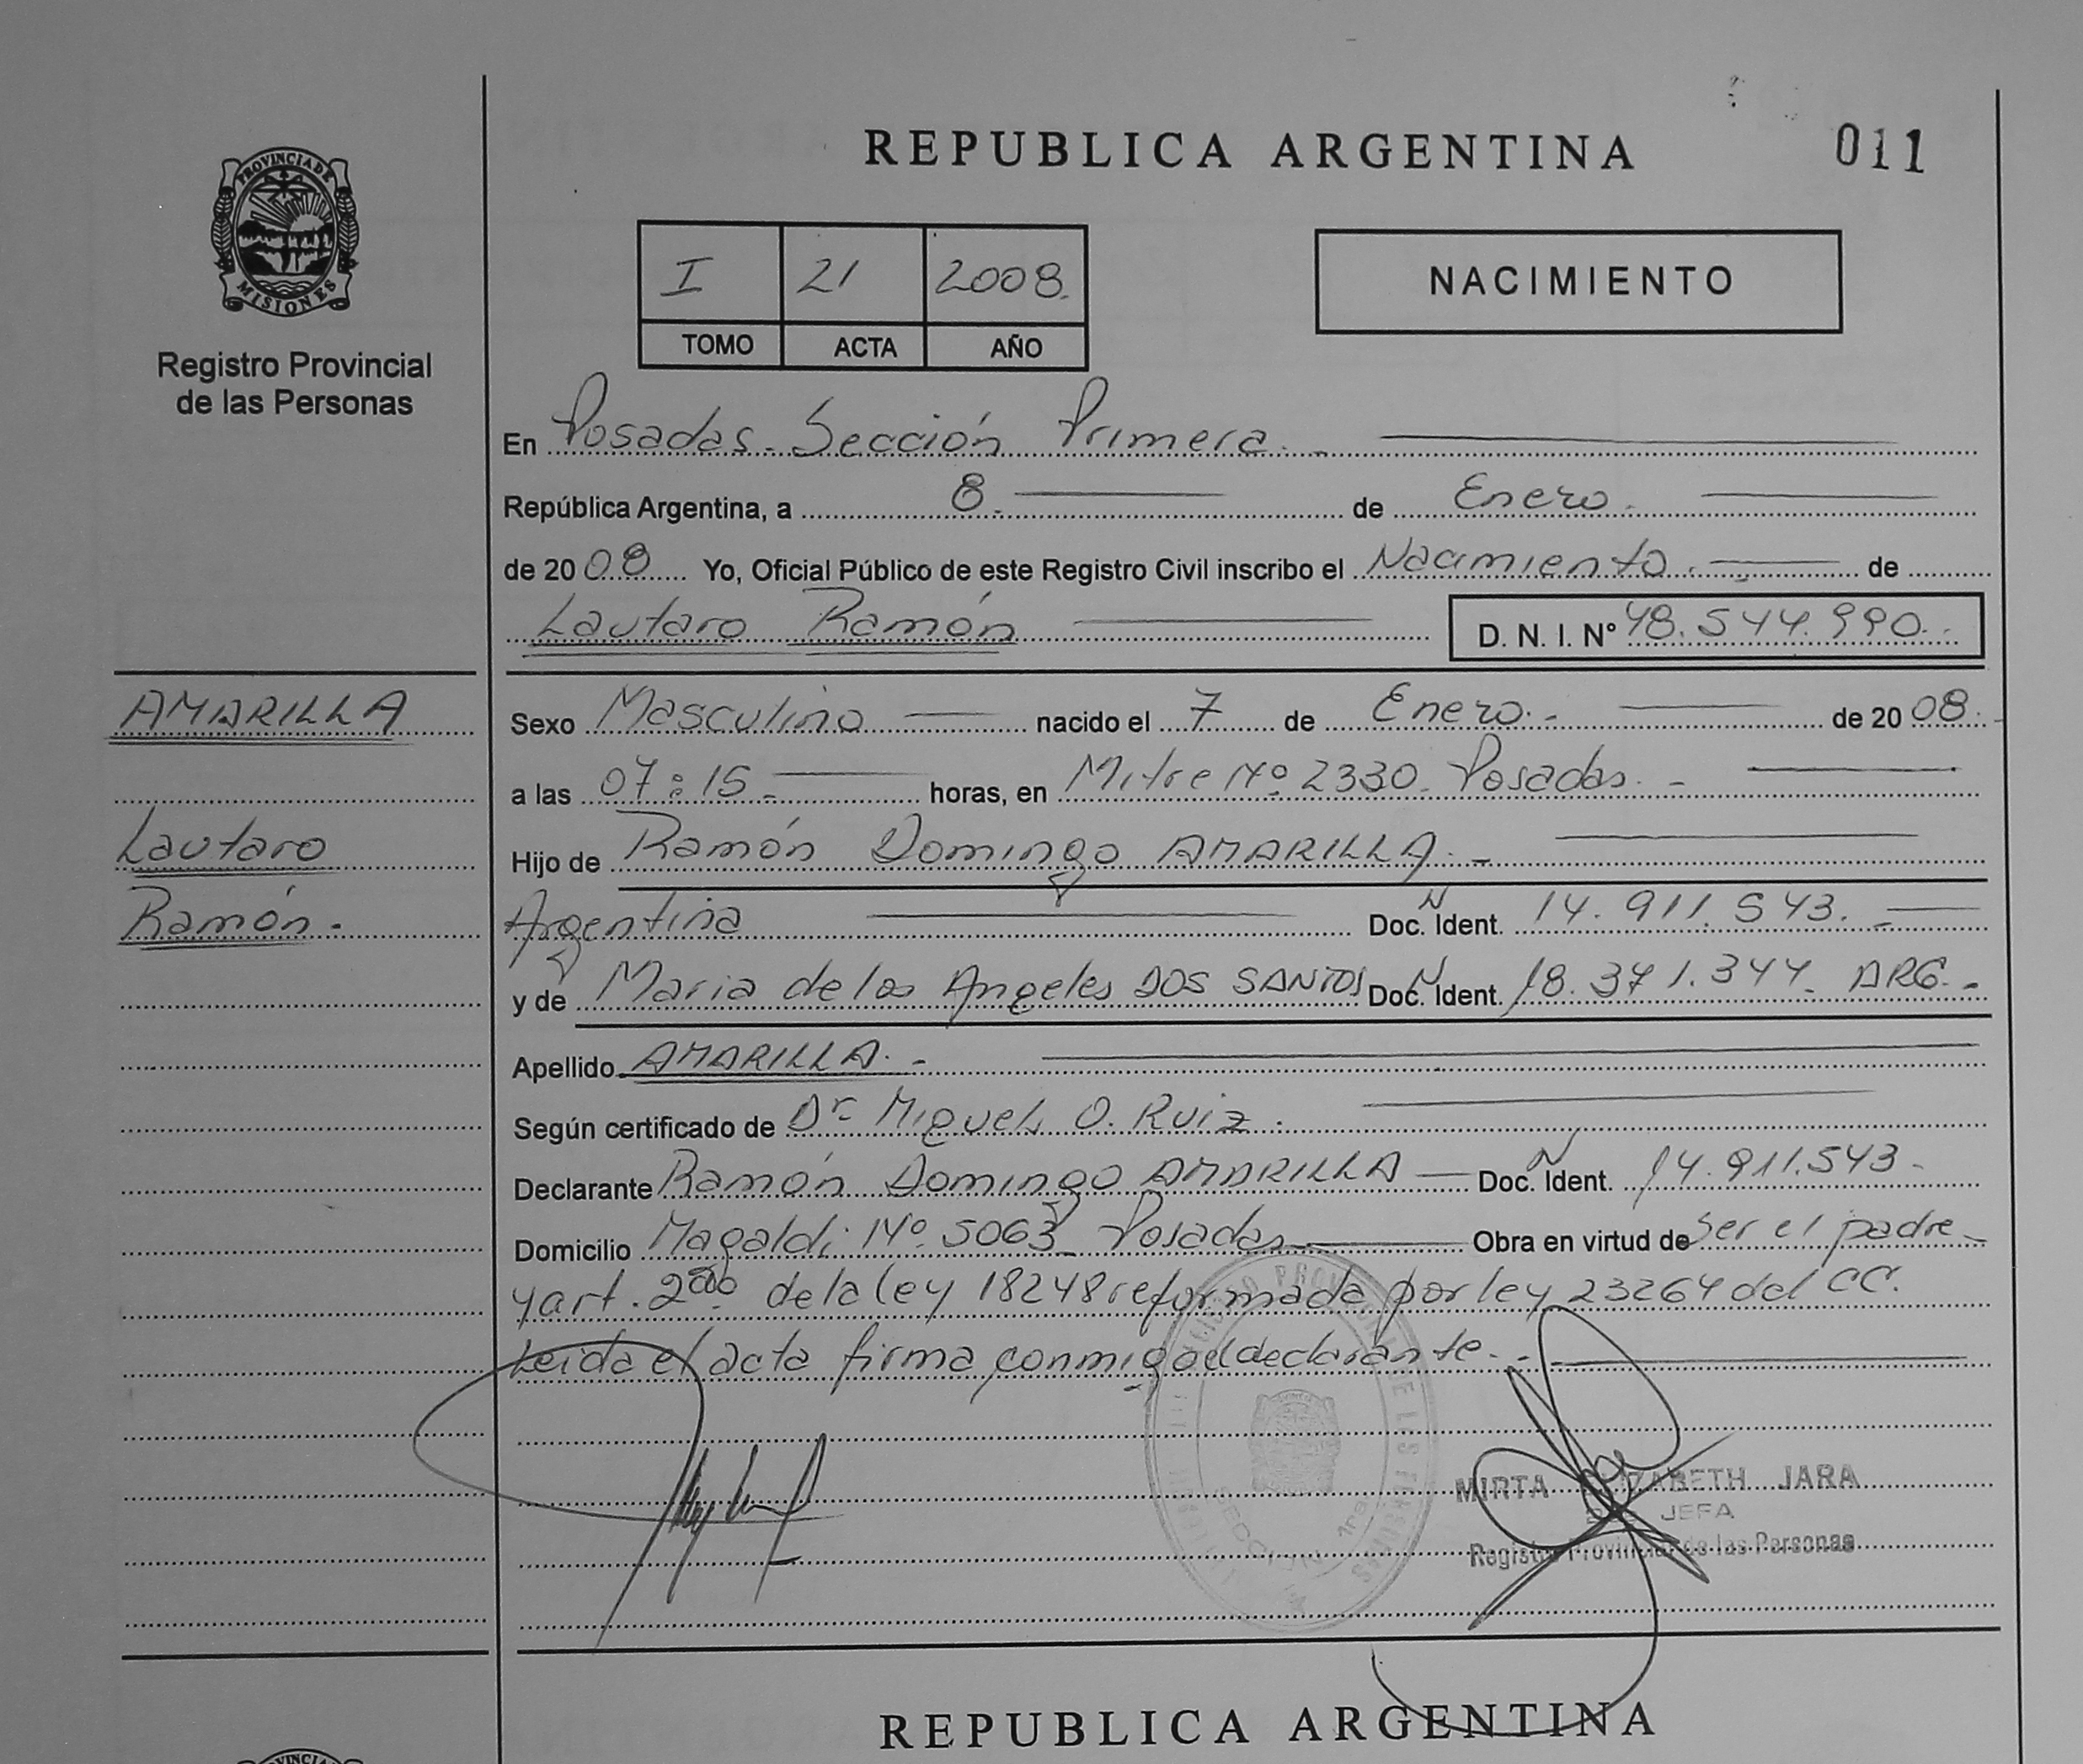 REPUBLICA ARGENTINA
011
PROVINCIA DE
MISIONES
Registro Provincial
de las Personas
I 21 2008.
TOMO ACTA AÑO
NACIMIENTO
En Posadas - Sección Primera. -
República Argentina, a 8. de Enero.
de 2008 Yo, Oficial Público de este Registro Civil inscribo el Nacimiento. - de
Lautaro Ramón D. N. I. Nº 48.544.990. -
AMARILLA
Sexo Masculino nacido el 7 de Enero. - de 2008.
a las 07:15 - horas, en Mitre Nº 2330 - Posadas. -
Lautaro
Hijo de Ramón Domingo AMARILLA. -
Ramón.
Argentina Doc. N Ident. 14.911.543. -
y de Maria de los Angeles DOS SANTOS Doc. N Ident. 18.371.344. ARG. -
Apellido AMARILLA. -
Según certificado de Dr Miguel O. Ruiz.
Declarante Ramón Domingo AMARILLA Doc. N Ident. 14.911.543.
Domicilio Magaldi Nº 5063 - Posadas Obra en virtud de ser el padre
y art. 2do de la ley 18248 reformada por ley 23264 del CC.
Leida el acta firma conmigo el declarante. -
MIRTA ELIZABETH JARA
JEFA
Registro Provincial de las Personas
REPUBLICA ARGENTINA